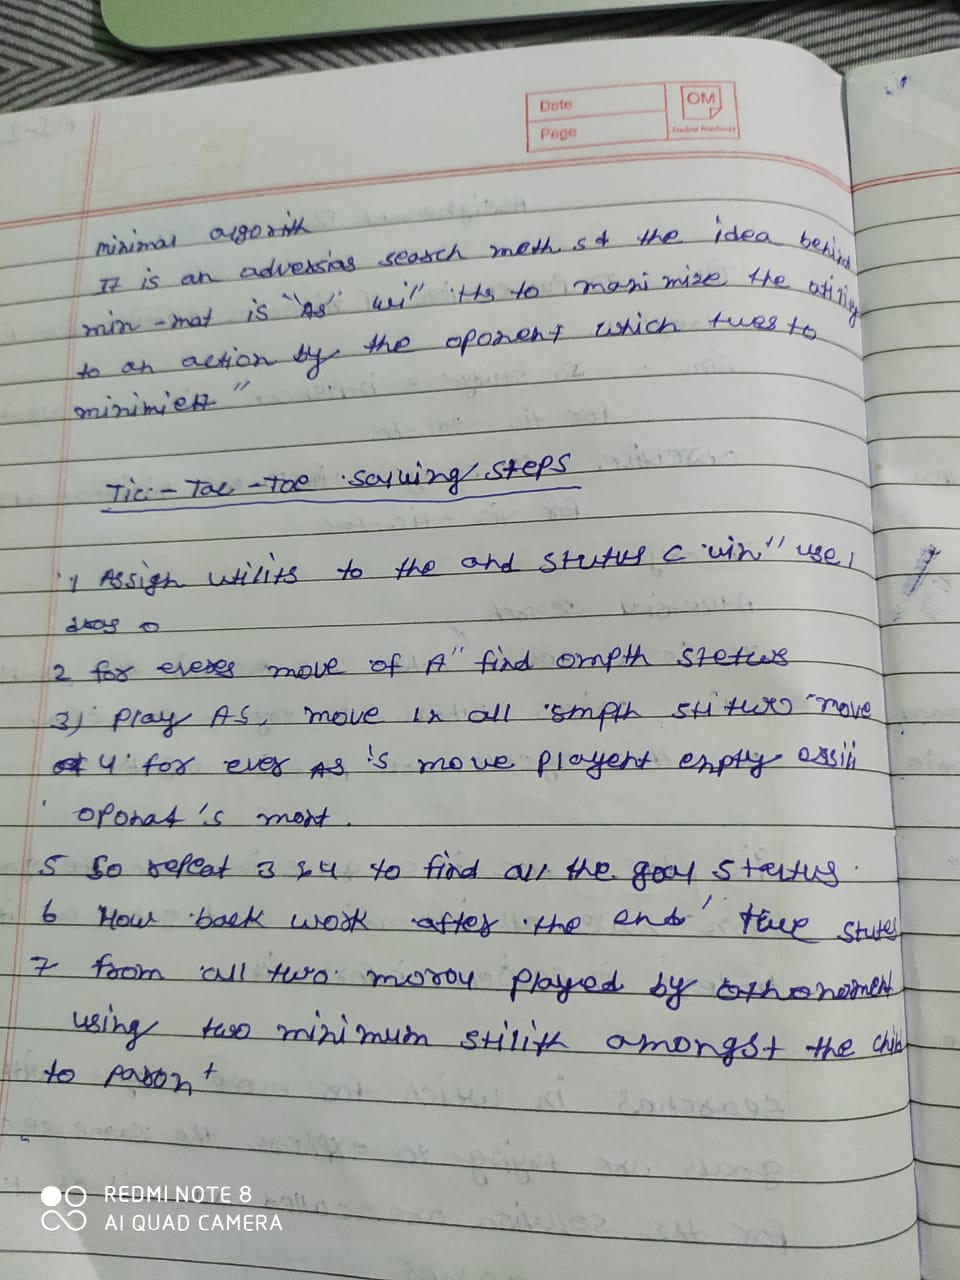 Date
Page
OM
Student Notebooks
minimax algorith
It is an adversias search meth st the idea behind
min-mat is "As" wil" ths to maximize the utiity
to an action by the oponent which tues to
minimiett"
Tic-Tac-Toe solwing steps
1 Assign utilits to the and status C win" use 1
dras 0
2 for everes move of A" find ompth stetus
3) Play AS, move in all smpth stitus move
4 for ever AS's move playent enpty assiii
oponat's mort.
5 So repeat 3 & 4 to find all the goal status.
6 How back work after the end' tree stutes
7 from all two morou played by
using two minimum stilith amongst the child
to paront
REDMI NOTE 8
AI QUAD CAMERA